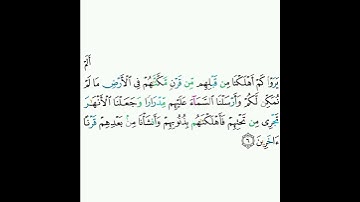 أَلَمۡ
يَرَوۡاْ كَمۡ أَهۡلَكۡنَا مِن قَبۡلِهِم مِّن قَرۡنٖ مَّكَّنَّٰهُمۡ فِي ٱلۡأَرۡضِ مَا لَمۡ
نُمَكِّن لَّكُمۡ وَأَرۡسَلۡنَا ٱلسَّمَآءَ عَلَيۡهِم مِّدۡرَارٗا وَجَعَلۡنَا ٱلۡأَنۡهَٰرَ
تَجۡرِي مِن تَحۡتِهِمۡ فَأَهۡلَكۡنَٰهُم بِذُنُوبِهِمۡ وَأَنشَأۡنَا مِنۢ بَعۡدِهِمۡ قَرۡنًا
ءَاخَرِينَ ٦